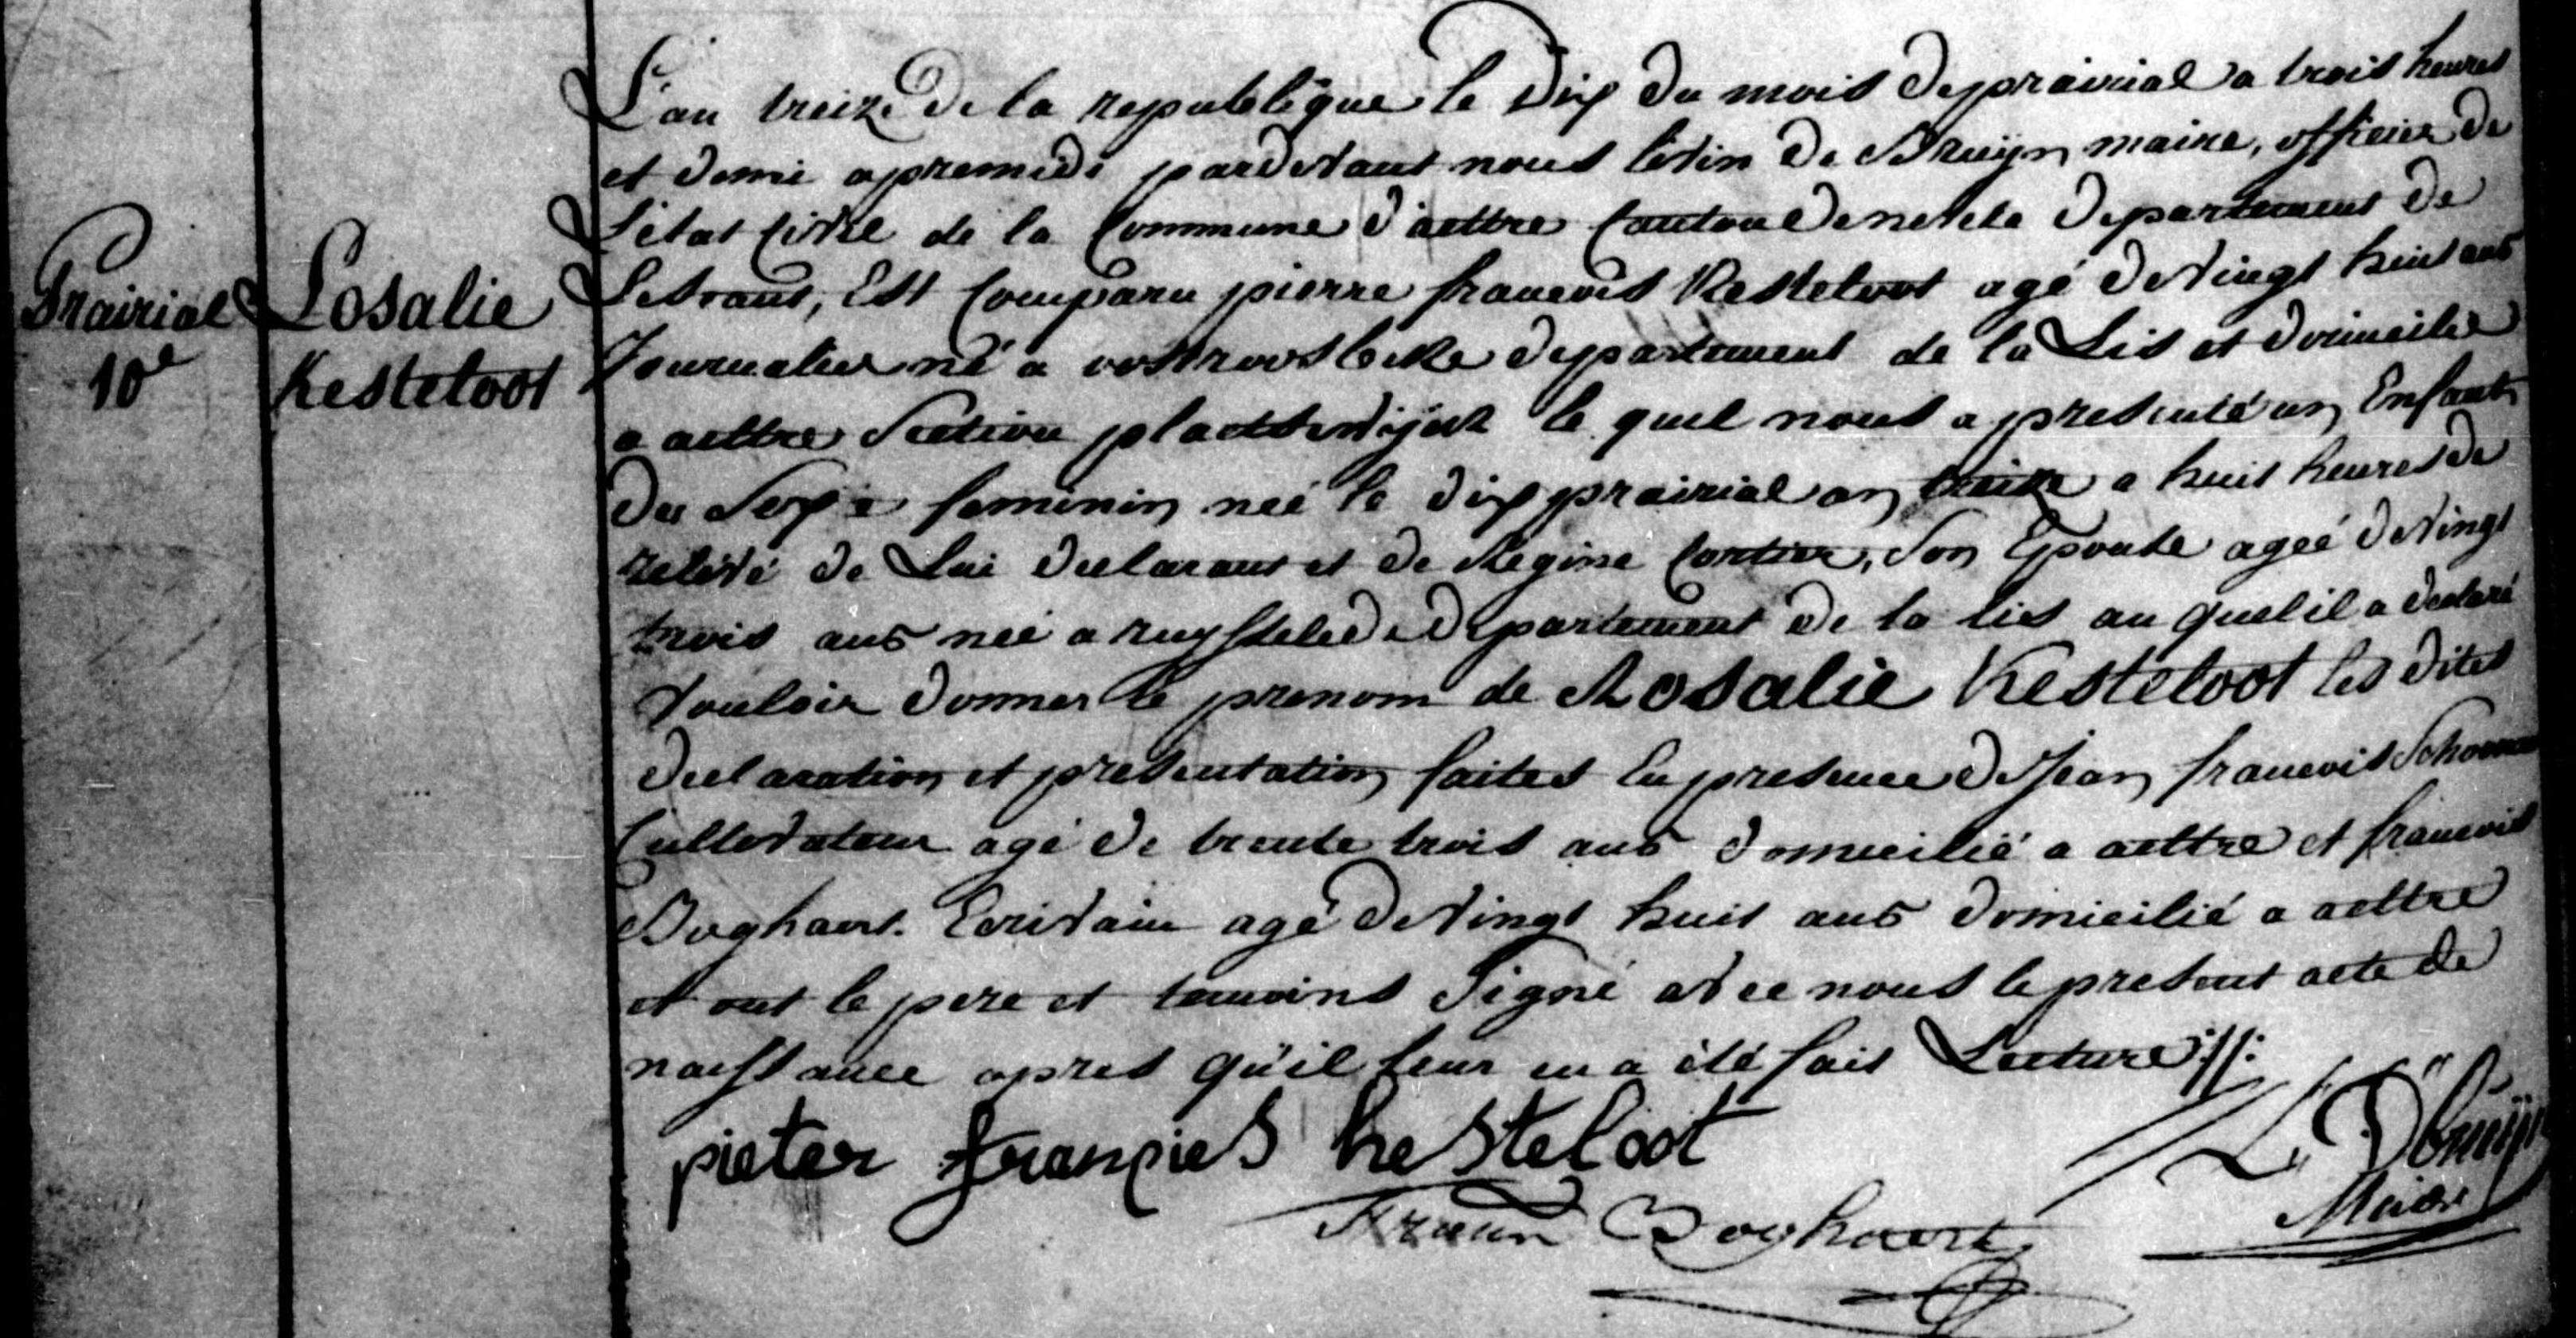 Prairial
10e
Rosalie
Kesteloot
L'an treize de la republique le dix du mois de prairial a trois heures
et demie apremidi pardevant nous livin De Bruÿn maire, officier de
L'état civile de la Commune d'aeltre Canton de nevele Departement de
Lescaut, Est Comparu pierre francois Kesteloot agé de vingt huit ans
Journalier né a oostroosbeke departement de la Lis et domicilié
a aeltre Section le quel nous a presenté un Enfant
du Sexe feminin neé le dix prairial an treize a huit heures de
relevé de Lui declarant et de Regine Cortier, son Epouse ageé de vingt
trois ans neé a ruysselede Departement de la lis au quel il a declaré
vouloir donner le prenom de Rosalie Kesteloot les dites
declaration et presentation faites En presence de Jean francois
Cultivateur agé de trente trois ans domicilié a aeltre et francois
Boghaert Ecrivain agé de vingt huit ans domicilié a aeltre
et ont le pere et temoins Signé avec nous le present acte de
naissance apres qu'il leur en a été fait Lecture
pieter francies kesteloot
L. D'bruÿn
Boghaert
Maire